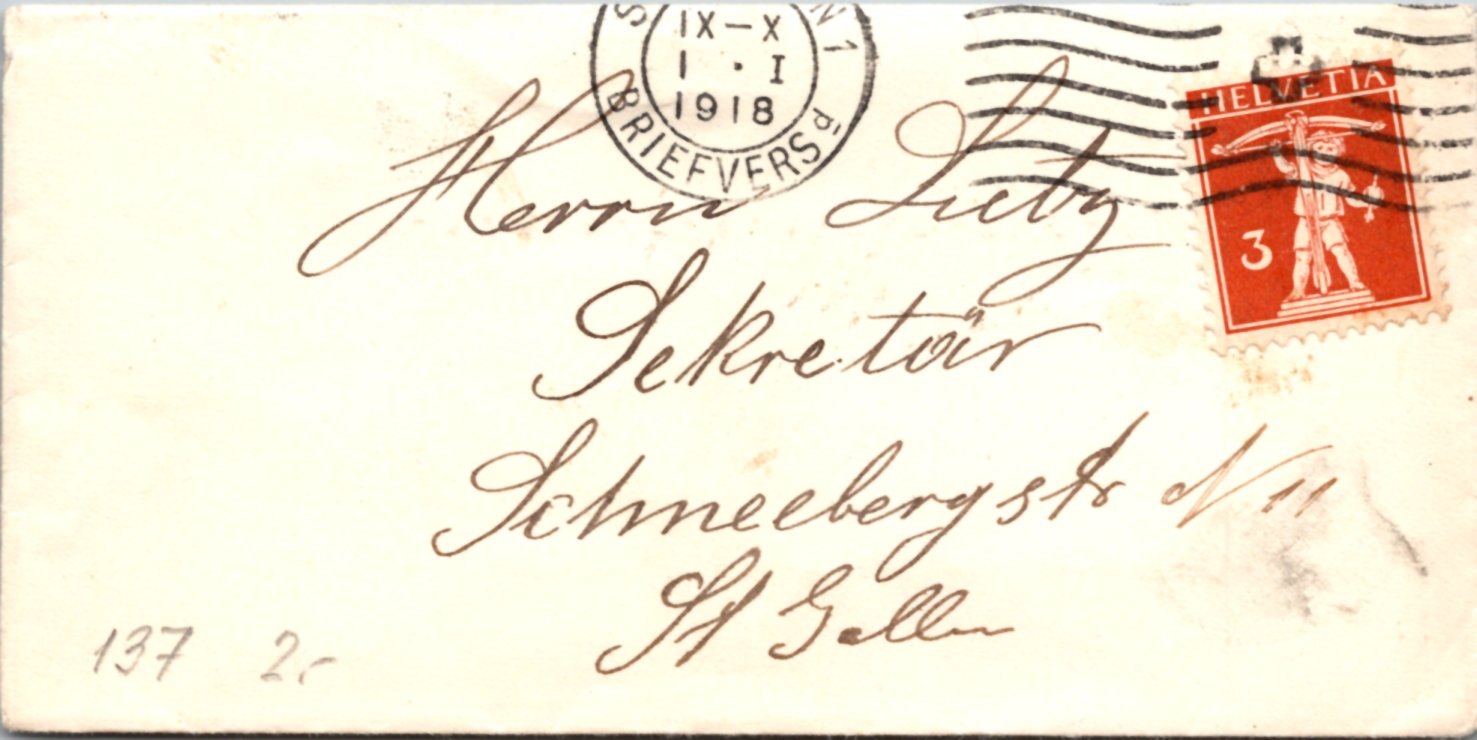 S N 1
IX—X
1 · I
1918
BRIEFVERSd
HELVETIA
3
Herrn
Sekretär
Schneebergstr N 11
St Gallen
137 2.-